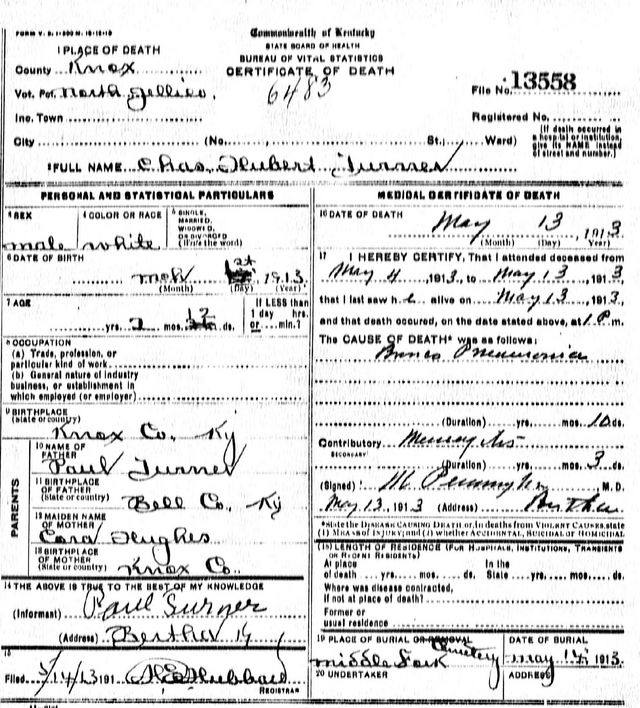 FORM V. S. 1-
Commonwealth of Kentucky
STATE BOARD OF HEALTH
BUREAU OF VITAL STATISTICS
CERTIFICATE OF DEATH
1 PLACE OF DEATH
County Knox
Vot. Pct. North Jellico
Inc. Town
City (No. St., Ward)
6483
File No. 13558
Registered No.
(If death occurred in
a hospital or institution,
give its NAME instead
of street and number.)
2 FULL NAME Chas. Hubert Turner
PERSONAL AND STATISTICAL PARTICULARS
3 SEX
male
4 COLOR OR RACE
white
5 SINGLE,
MARRIED,
WIDOWED,
OR DIVORCED
(Write the word)
6 DATE OF BIRTH
mch 1st, 1913
(Month) (Day) (Year)
7 AGE
yrs. 2 mos. 12 ds.
If LESS than
1 day hrs.
or min.?
8 OCCUPATION
(a) Trade, profession, or
particular kind of work
(b) General nature of industry
business, or establishment in
which employed (or employer)
9 BIRTHPLACE
(State or country)
Knox Co. Ky
PARENTS
10 NAME OF
FATHER
Paul Turner
11 BIRTHPLACE
OF FATHER
(State or country)
Bell Co, Ky
12 MAIDEN NAME
OF MOTHER
Cora Hughes
13 BIRTHPLACE
OF MOTHER
(State or country)
Knox Co.
14 THE ABOVE IS TRUE TO THE BEST OF MY KNOWLEDGE
(Informant) Paul Turner
(Address) Bertha Ky
15
Filed 5/14/13 191 Hubbard
REGISTRAR
MEDICAL CERTIFICATE OF DEATH
16 DATE OF DEATH
May 13, 1913
(Month) (Day) (Year)
17 I HEREBY CERTIFY, That I attended deceased from
May 4, 1913, to May 13, 1913,
that I last saw h alive on May 13, 1913,
and that death occurred, on the date stated above, at 1 P. m.
The CAUSE OF DEATH* was as follows:
Pneumonia
(Duration) yrs. mos. 10 ds.
Contributory
SECONDARY
(Duration) yrs. mos. 3 ds.
(Signed) M. D.
May 13, 1913 (Address) Bertha
*State the DISEASE CAUSING DEATH or, in deaths from VIOLENT CAUSES, state
(1) MEANS OF INJURY; and (2) whether ACCIDENTAL, SUICIDAL OR HOMICIDAL
(18) LENGTH OF RESIDENCE (FOR HOSPITALS, INSTITUTIONS, TRANSIENTS
OR RECENT RESIDENTS)
At place
of death yrs. mos. ds.
In the
State yrs. mos. ds.
Where was disease contracted,
if not at place of death?
Former or
usual residence
19 PLACE OF BURIAL OR REMOVAL
middle Fork Cemetery
DATE OF BURIAL
may 14, 1913
20 UNDERTAKER
ADDRESS